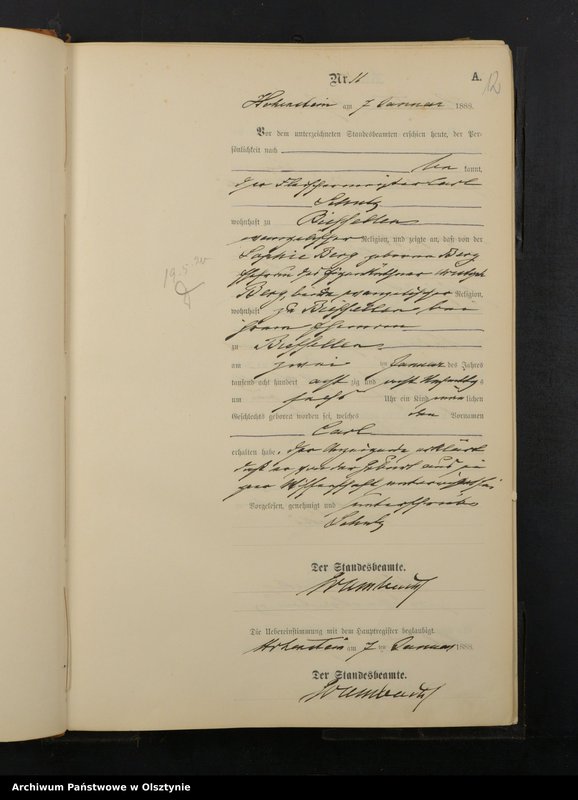 Nr. 11
A.
12
Hohenstein am 7 Januar 1888.
Vor dem unterzeichneten Standesbeamten erschien heute, der Per-
sönlichkeit nach
kannt,
der Fleischermeister Carl
Schulz
wohnhaft zu Biessellen
evangelischer Religion, und zeigte an, daß von der
Sophie Berg geborne Berg
Ehefrau des Eigenkäthner
Berg, beide evangelischer Religion,
wohnhaft zu Biessellen, bei
ihrem Ehemann
zu Biessellen
am zwei ten Januar des Jahres
tausend acht hundert acht zig und acht Vormittags
um sechs Uhr ein Kind männlichen
Geschlechts geboren worden sei, welches den Vornamen
Carl
erhalten habe. Der Anzeigende erklärt
daß er von der Geburt aus ei
gener Wissenschaft unterrichtet sei
Vorgelesen, genehmigt und unterschrieben
Schulz
Der Standesbeamte.
Die Uebereinstimmung mit dem Hauptregister beglaubigt.
Hohenstein am 7 ten Januar 1888.
Der Standesbeamte.
Archiwum Państwowe w Olsztynie